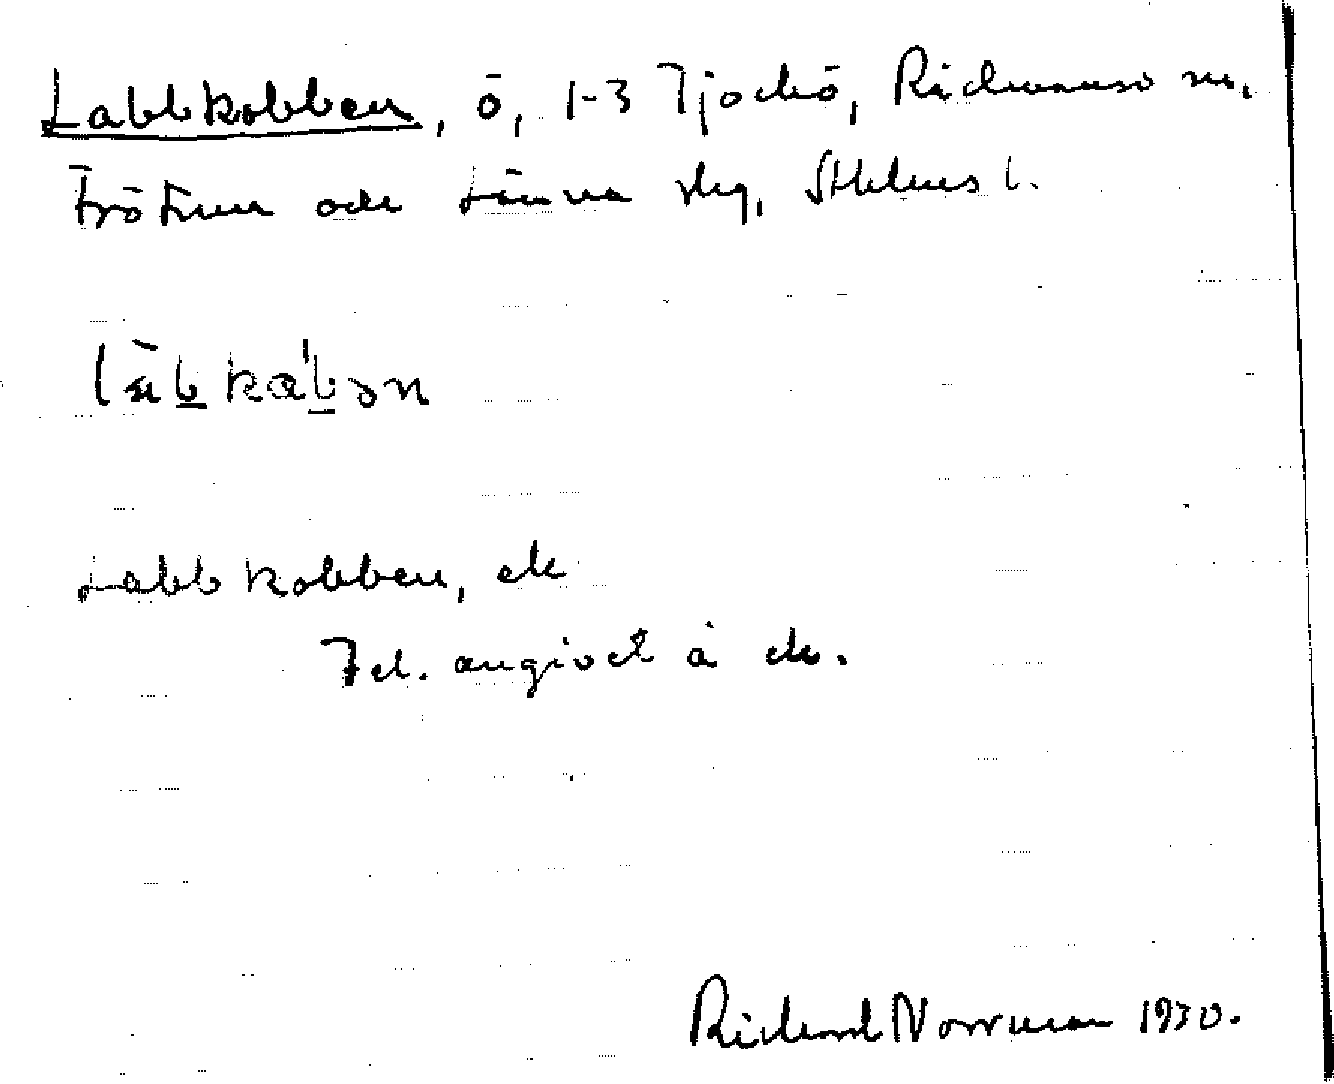 Labbkobben, ö, 1-3 Tjockö, Rådmansö sn,
Frötuna och Länna skg, Sthlms l.
Labbkobben, ek
Fel. angivet å ek.
Richard Norrman 1930.